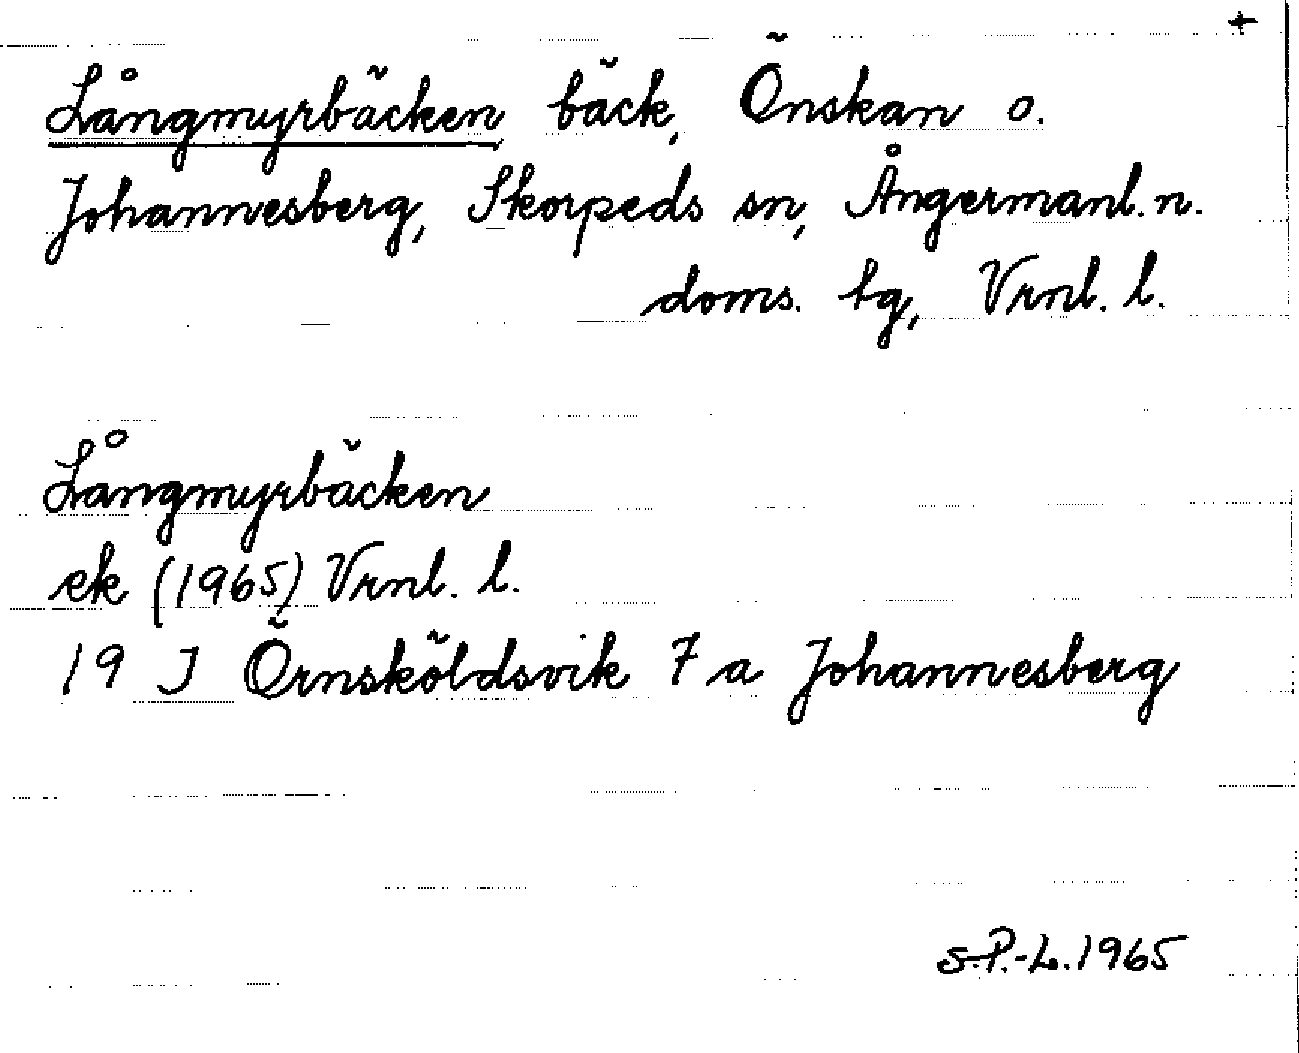 +
Långmyrbäcken bäck, Önskan o.
Johannesberg, Skorpeds sn, Ångermanl. n.
doms. tg, Vrnl. l.
Långmyrbäcken
ek (1965) Vrnl. l.
19 J Örnsköldsvik 7 a Johannesberg
S.P.-L. 1965